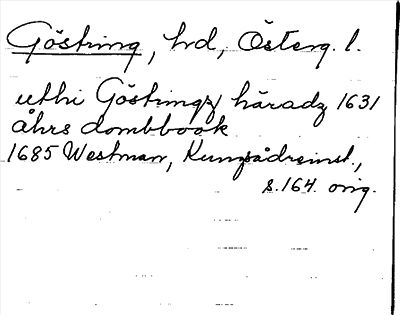 Göstring, hd, Österg. l.
uthi Göstringz häradz 1631
åhrs dombbook
1685 Westman, Kungsådreinst.,
s. 164. orig.